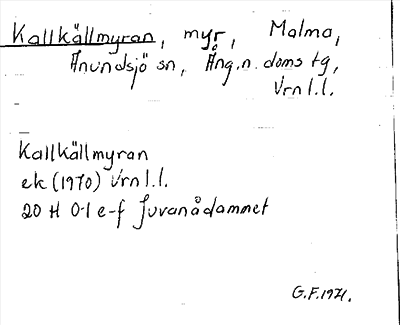 Kallkällmyran, myr, Malma,
Ånundsjö sn, Ång.n.doms tg,
Vrn l.l.
Kallkällmyran
ek (1970) Vrn l.l.
20 H 0-1 e-f Juvanådammet
G.F.1971.